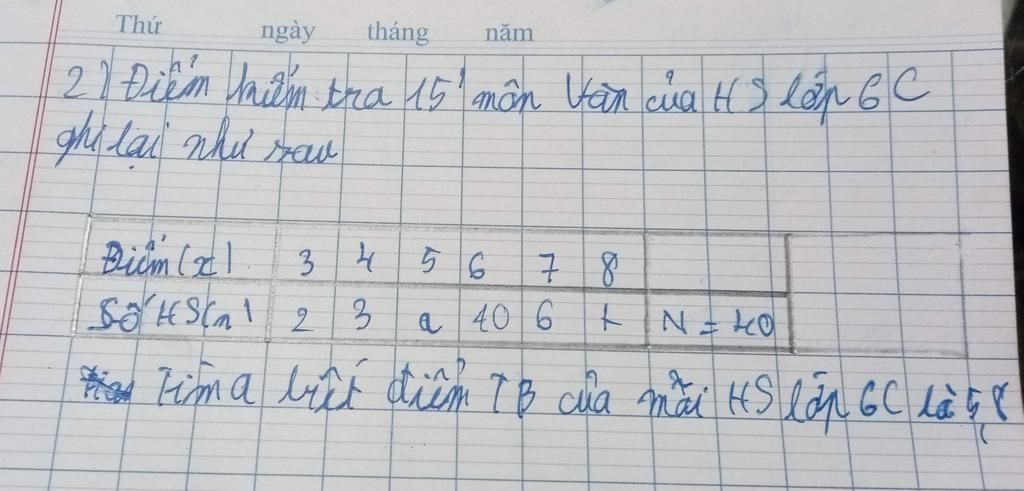 Thứ ngày tháng năm
2) Điểm kiểm tra 15' môn Văn của HS lớp 6C
ghi lại như sau
Điểm (x) 3 4 5 6 7 8
Số HS(n) 2 3 a 10 6 4 N = 40
Tìm a biết điểm TB của mỗi HS lớp 6C là 5,8